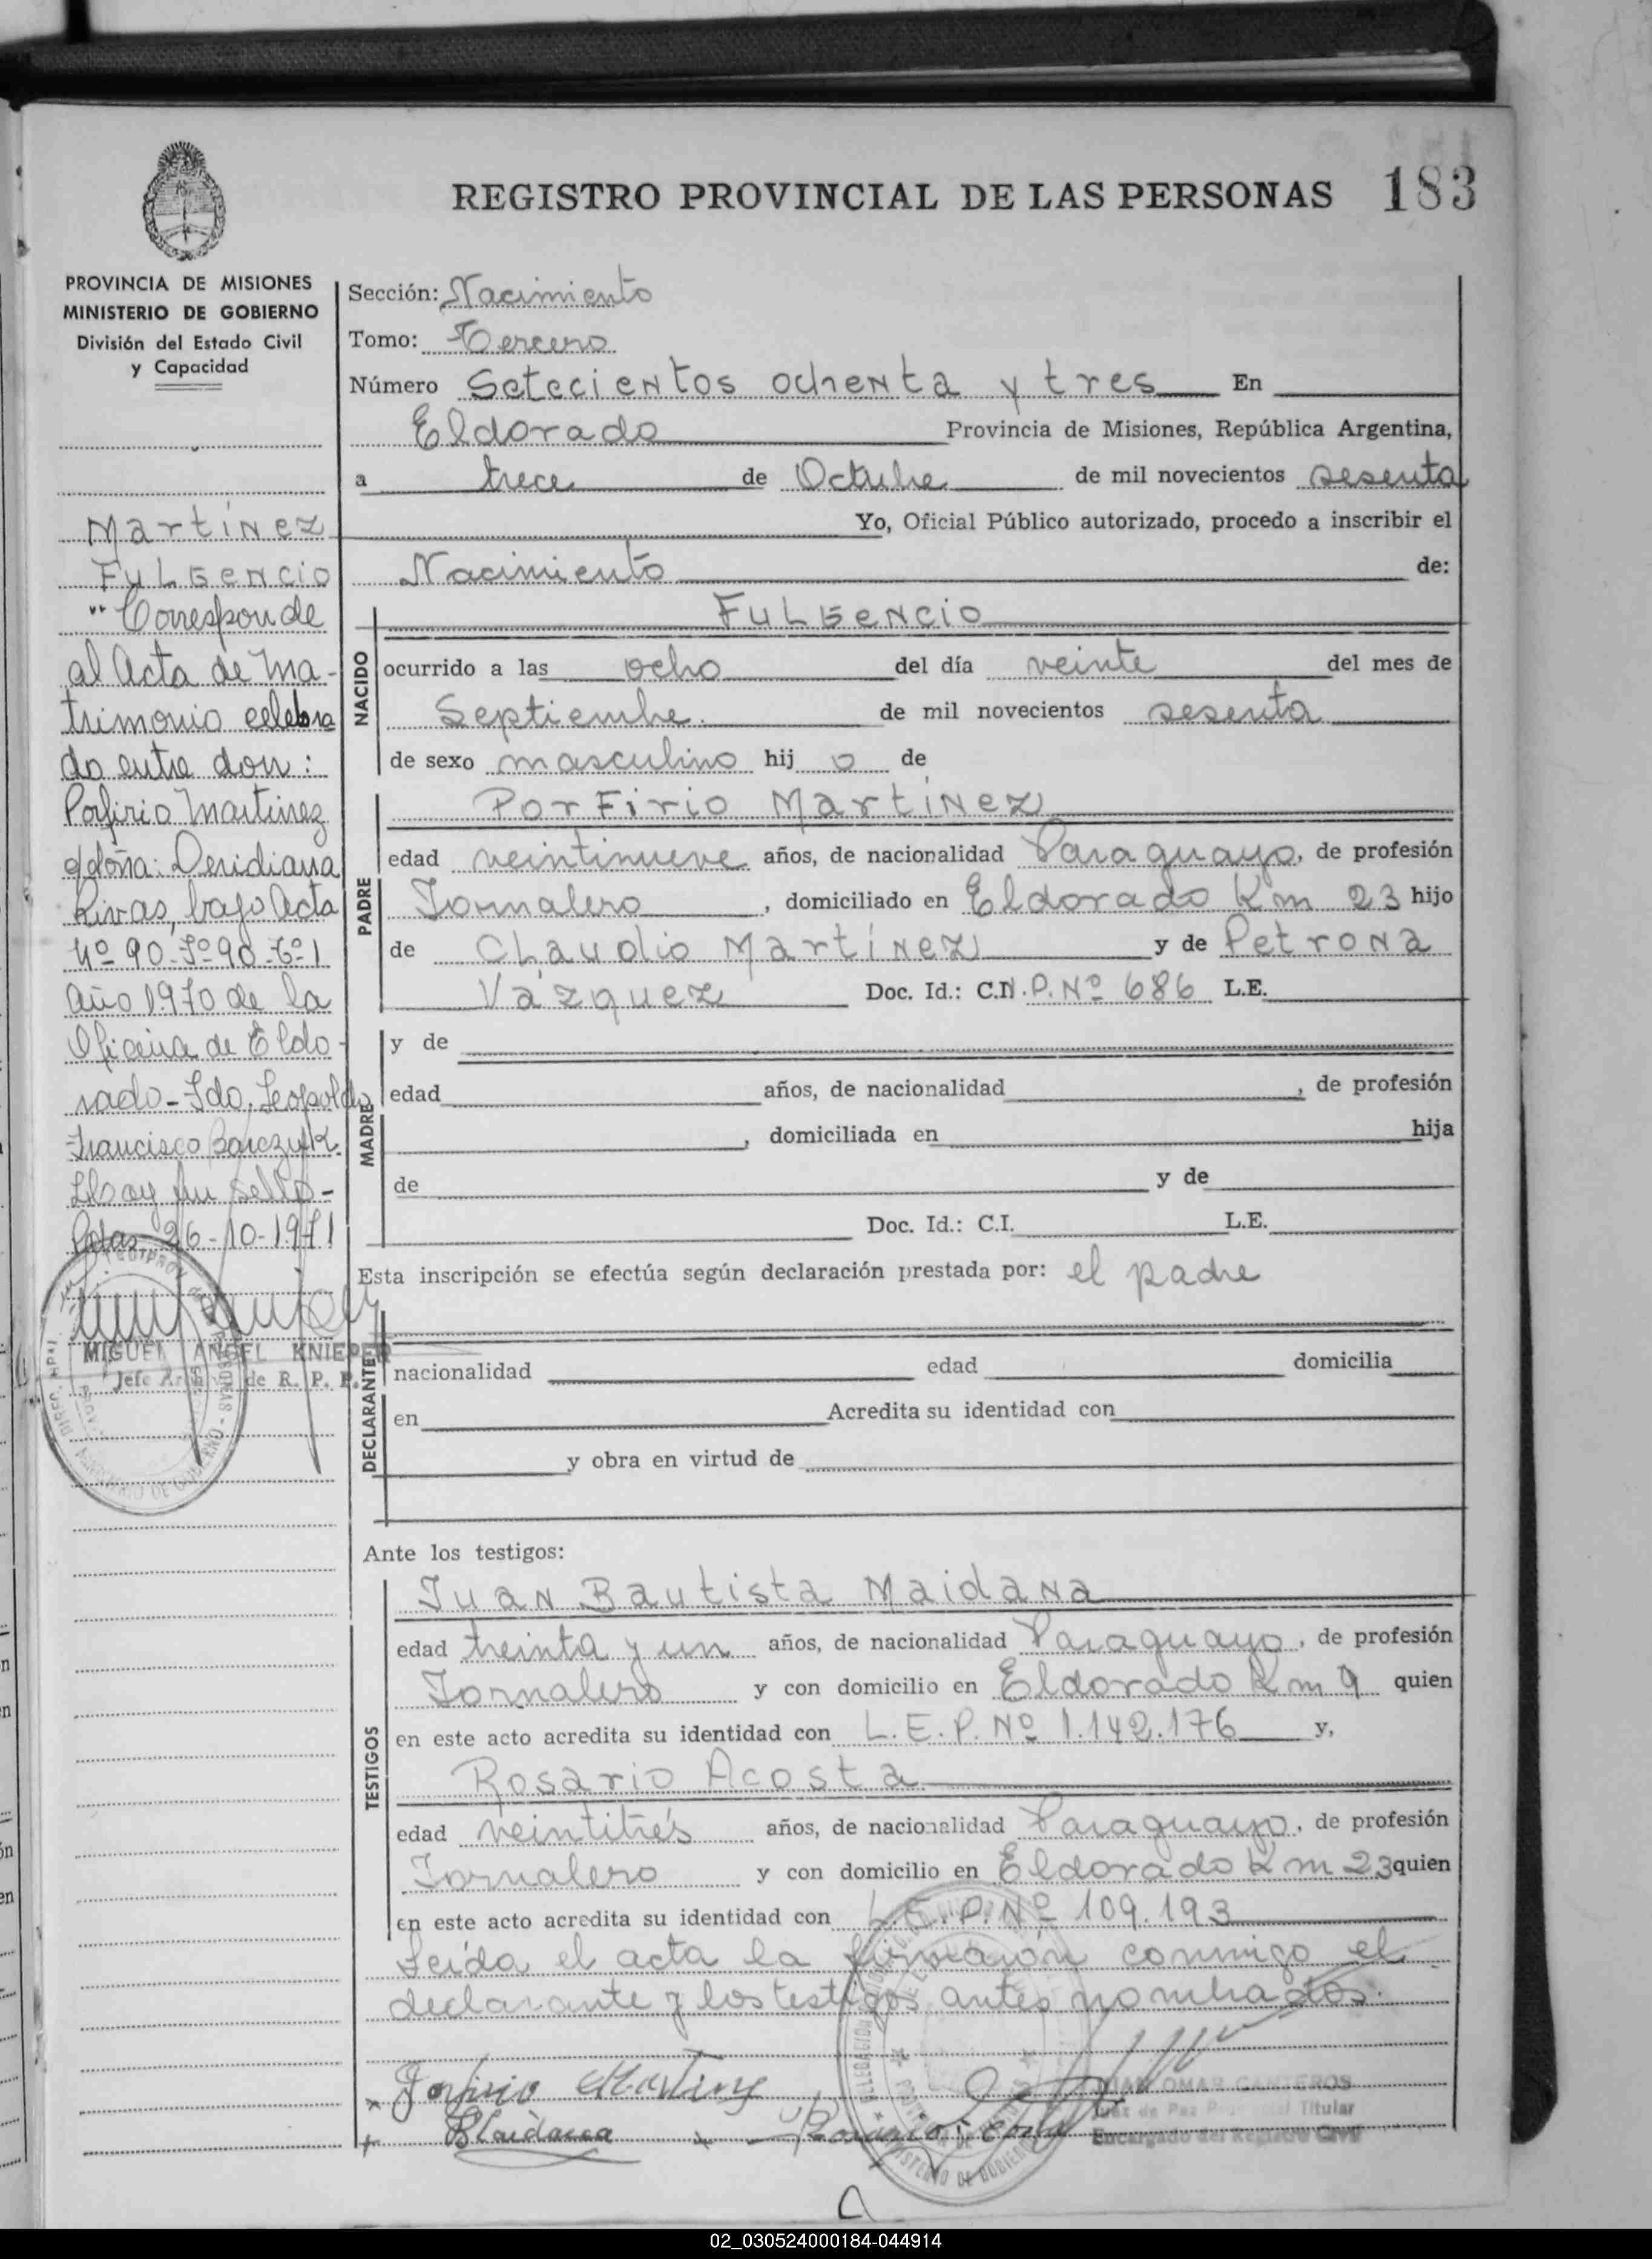 REGISTRO PROVINCIAL DE LAS PERSONAS 183
PROVINCIA DE MISIONES
MINISTERIO DE GOBIERNO
División del Estado Civil
y Capacidad
Martínez
Fulgencio
"Corresponde
al Acta de Ma-
trimonio celebra
do entre don:
Porfirio Martinez
y doña: Deridiana
Rivas, bajo Acta
Nº 90-Fº 90-Tº 1
Año 1970 de la
Oficina de Eldo-
rado-Fdo. Leopoldo
Francisco
Hay un sello-
Pdas 26-10-1971
MIGUEL ANGEL KNIEPER
Jefe Archivo de R. P. P.
Sección: Nacimiento
Tomo: Tercero
Número Setecientos ochenta y tres En
Eldorado Provincia de Misiones, República Argentina,
a trece de Octubre de mil novecientos sesenta
Yo, Oficial Público autorizado, procedo a inscribir el
Nacimiento de:
NACIDO
Fulgencio
ocurrido a las ocho del día veinte del mes de
Septiembre de mil novecientos sesenta
de sexo masculino hij o de
PADRE
Porfirio Martínez
edad veintinueve años, de nacionalidad Paraguayo, de profesión
Jornalero, domiciliado en Eldorado Km 23 hijo
de Claudio Martínez y de Petrona
Vázquez Doc. Id.: C.N.P. Nº 686 L.E.
MADRE
y de
edad años, de nacionalidad , de profesión
, domiciliada en hija
de y de
Doc. Id.: C.I. L.E.
Esta inscripción se efectúa según declaración prestada por: el padre
DECLARANTE
nacionalidad edad domicilia
en Acredita su identidad con
y obra en virtud de
Ante los testigos:
TESTIGOS
Juan Bautista Maidana
edad treinta y un años, de nacionalidad Paraguayo, de profesión
Jornalero y con domicilio en Eldorado Km 9 quien
en este acto acredita su identidad con L.E.P. Nº 1.142.176 y,
Rosario Acosta
edad veintitrés años, de nacionalidad Paraguayo, de profesión
Jornalero y con domicilio en Eldorado Km 23 quien
en este acto acredita su identidad con L.E.P. Nº 109.193
Leída el acta la firmaron conmigo el
declarante y los testigos antes nombrados.
Porfirio Martinez
JUAN OMAR CANTEROS
Juez de Paz Titular
Encargado del Registro Civil
02_030524000184-044914